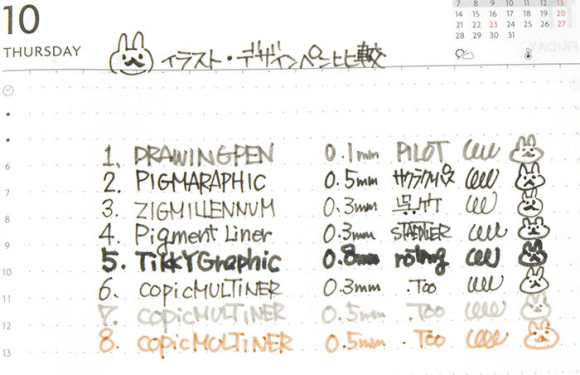 10
THURSDAY
イラスト・デザインペン比較
7 8 9 10 11 12 13
14 15 16 17 18 19 20
21 22 23 24 25 26 27
28 29 30 31
6
7
8
9
10
11
12
13
1. DRAWINGPEN 0.1mm PILOT
2. PIGMARAPHIC 0.5mm サクラクレパス
3. ZIGMILLENNUM 0.3mm 呉竹
4. Pigment Liner 0.3mm STAEDLER
5. TikKYGraphic 0.8mm rotring
6. COPICMULTINER 0.3mm .Too
7. COPICMULTINER 0.5mm .Too
8. COPICMOLTINER 0.5mm .Too